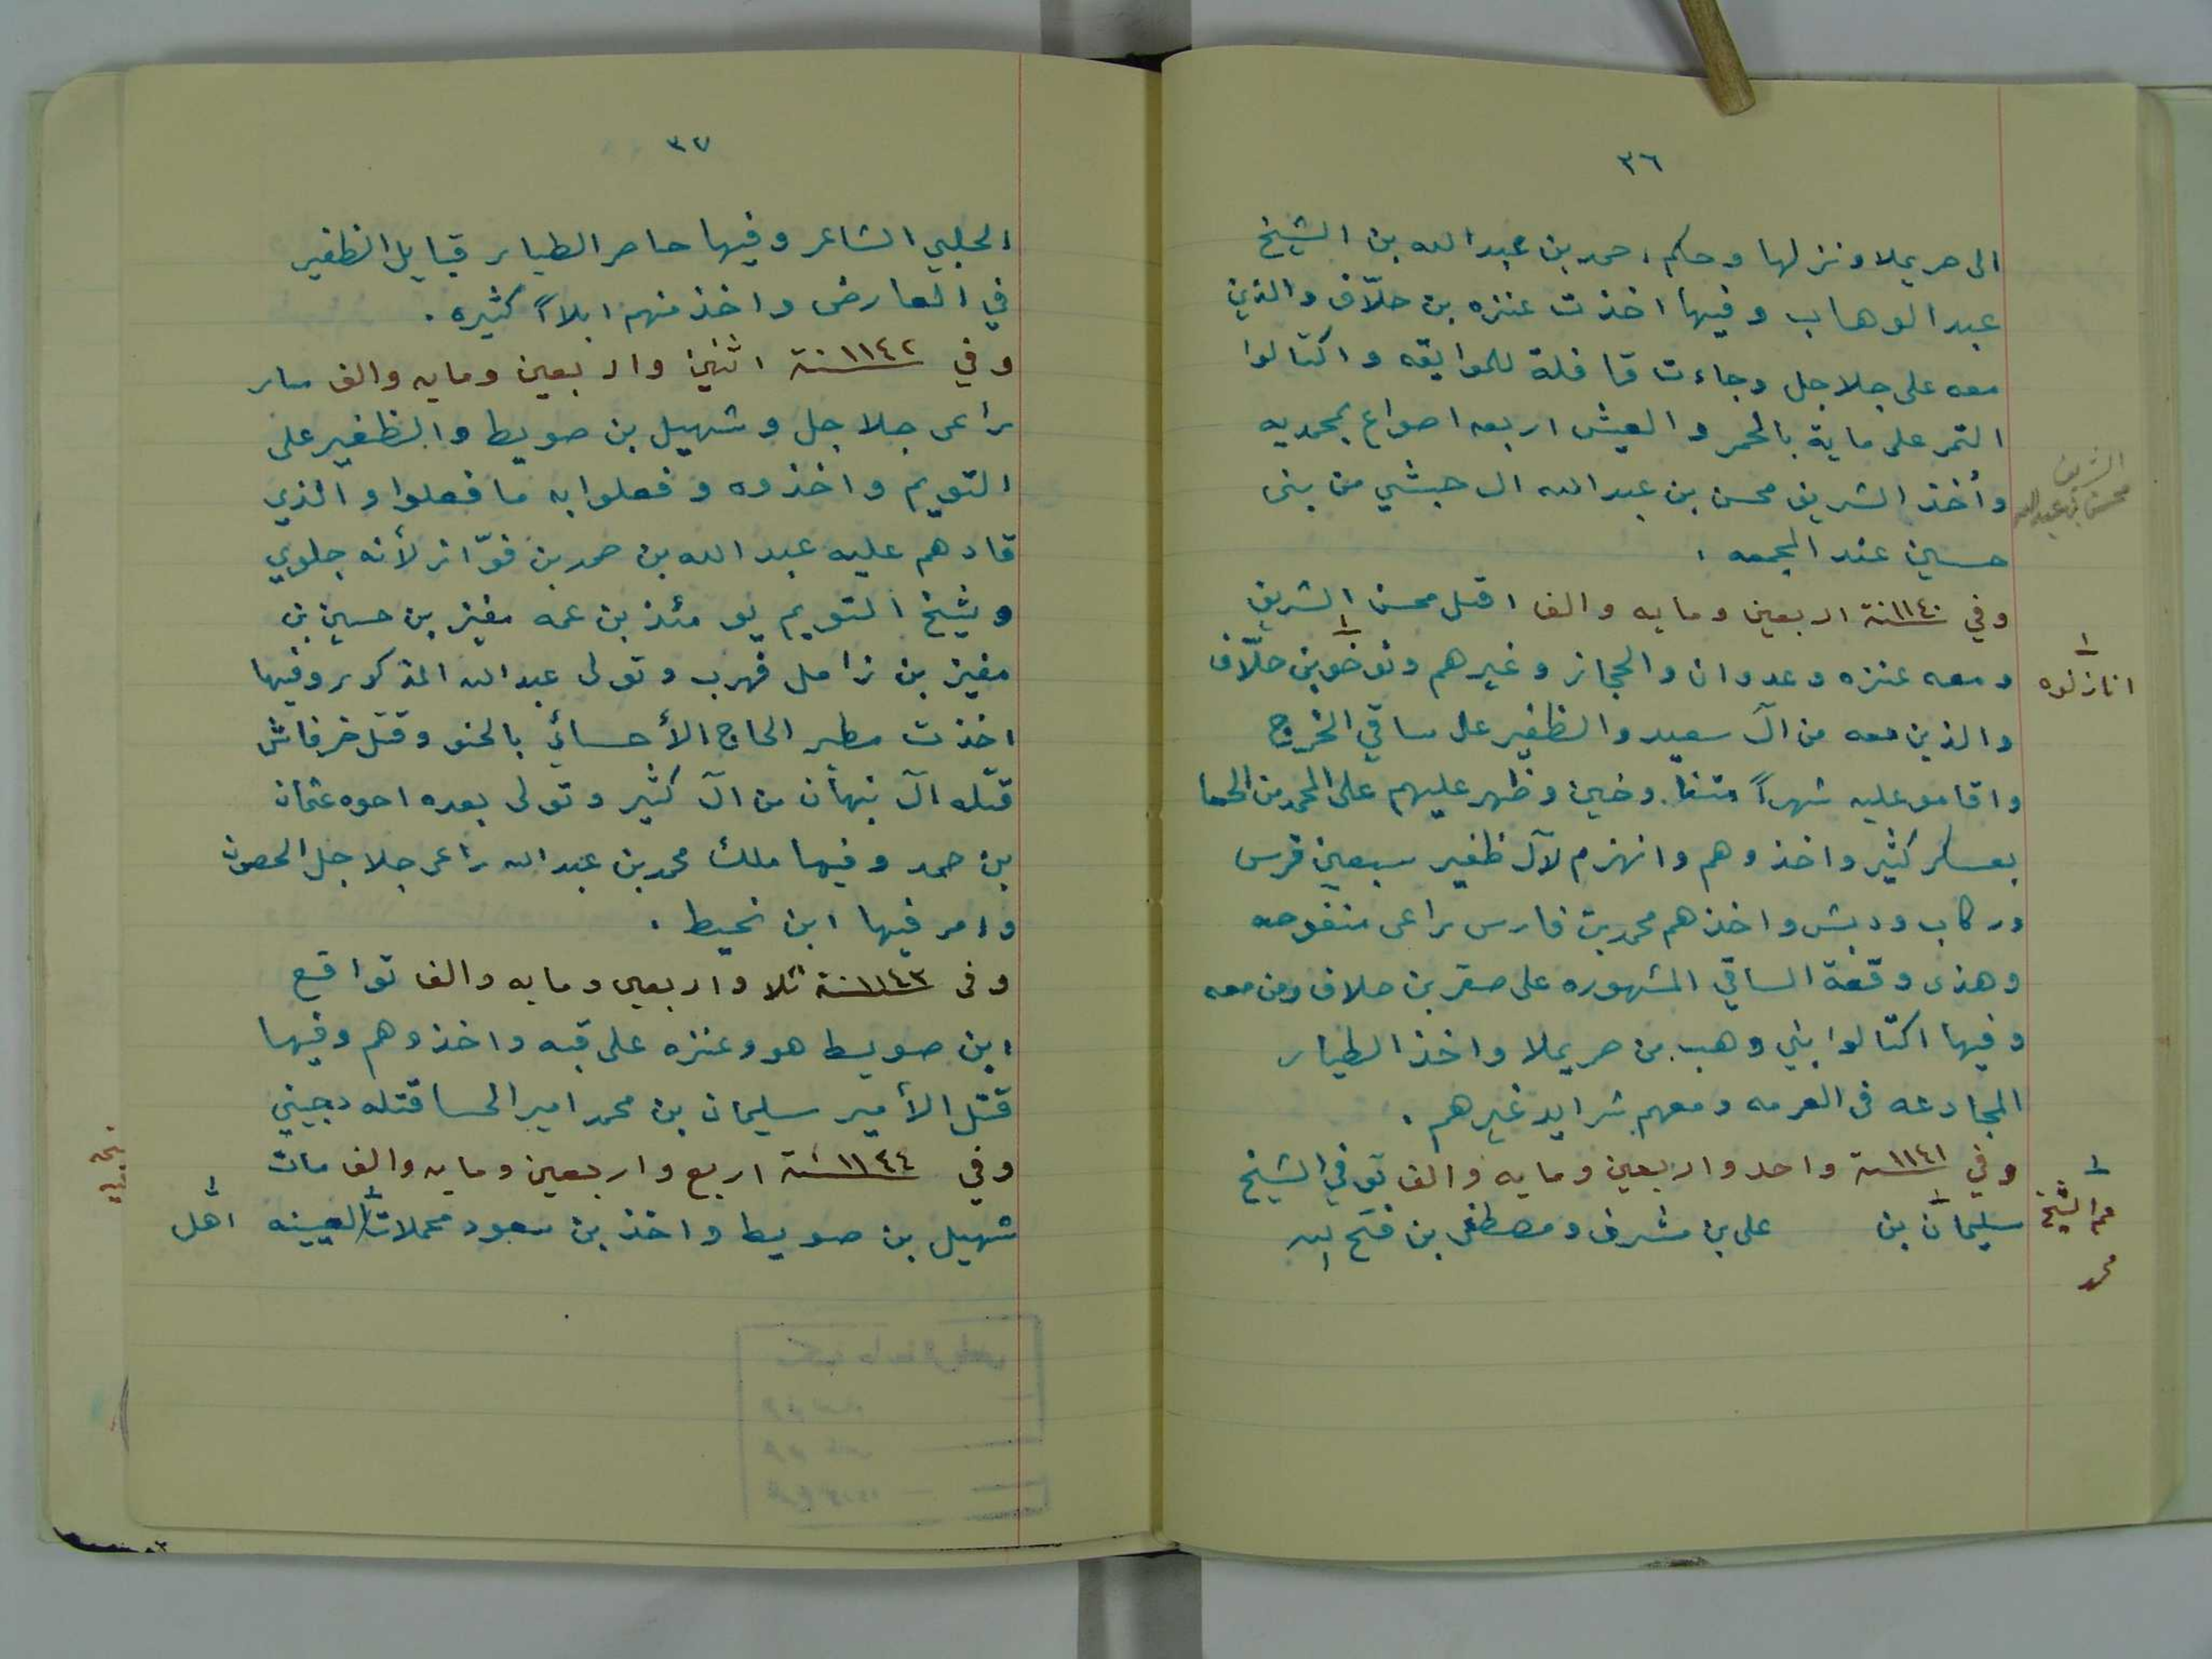 ٣٦
الى حريملا ونزلها وحكم احمد بن عبد الله بن الشيخ
عبد الوهاب وفيها اخذت عنزه بن حلّاف والذين
معه على جلاجل وجاءت قافلة للموايقه واكتالوا
التمر على ماية بالحمر والعيش اربعه اصواع بمحمديه
وأخذ الشريف محسن بن عبد الله ال حبشي من بنى
حسين عند المجمعه .
الشريف
محسن بن عبد الله
وفي ١١٤٠ سنة اربعين ومايه والف اقبل محسن الشريف
ومعه عنزه وعدوان والحجاز وغيرهم ونوخو بن حلّاف
انازلوه
والذين معه من آل سعيد والظفير على ساقي الخرج
واقامو عليه شهراً وظهر عليهم على المحمد من الحسا
بعساكر كثير واخذوهم وانهزم لآل ظفير سبعين فرس
وركاب ودبش واخذهم محمد بن فارس راعى منفوحه
وهذى وقعة الساقي المشهوره على صقر بن حلاف ومن معه
وفيها اكتالوا بني وهب من حريملا واخذ الطيار
المجادعه فى العرمه ومعهم شرايد غيرهم .
وفي ١١٤١ سنة واحد واربعين ومايه والف توفي الشيخ
سليمان بن على بن مشرف ومصطفى بن فتح الله
عم الشيخ
محمد
٣٧
الحلبي الشاعر وفيها حاصر الطيار قبايل الظفير
في العارض واخذ منهم ابلاً كثيره .
وفي ١١٤٢ سنة اثنين واربعين ومايه والف سار
راعى جلاجل وشهيل بن صويط والظفير على
التويم واخذوه وفعلوا به ما فعلوا والذي
قادهم عليه عبد الله بن حمد بن فوّاز لأنه جلوي
وشيخ التويم يومئذ بن عمه مفيز بن حسين بن
مفيز بن زامل فهرب وتولى عبد الله المذكور وفيها
اخذت مطير الحاج الأحسائي بالحنو وقتل خرفاش
قتله آل نبهان من آل كثير وتولى بعده اخوه عثمان
بن حمد وفيها ملك محمد بن عبد الله راعى جلاجل الحصون
وامر فيها ابن نحيط .
وفى ١١٤٣ سنة ثلا واربعين ومايه والف تواقع
ابن صويط هو وعنزه على قبه واخذوهم وفيها
قتل الأمير سليمان بن محمد امير الحسا قتله دجيني
وفي ١١٤٤ سنة اربع واربعين ومايه والف مات
شهيل بن صويط واخذ بن سعود محملات العيينه اهل